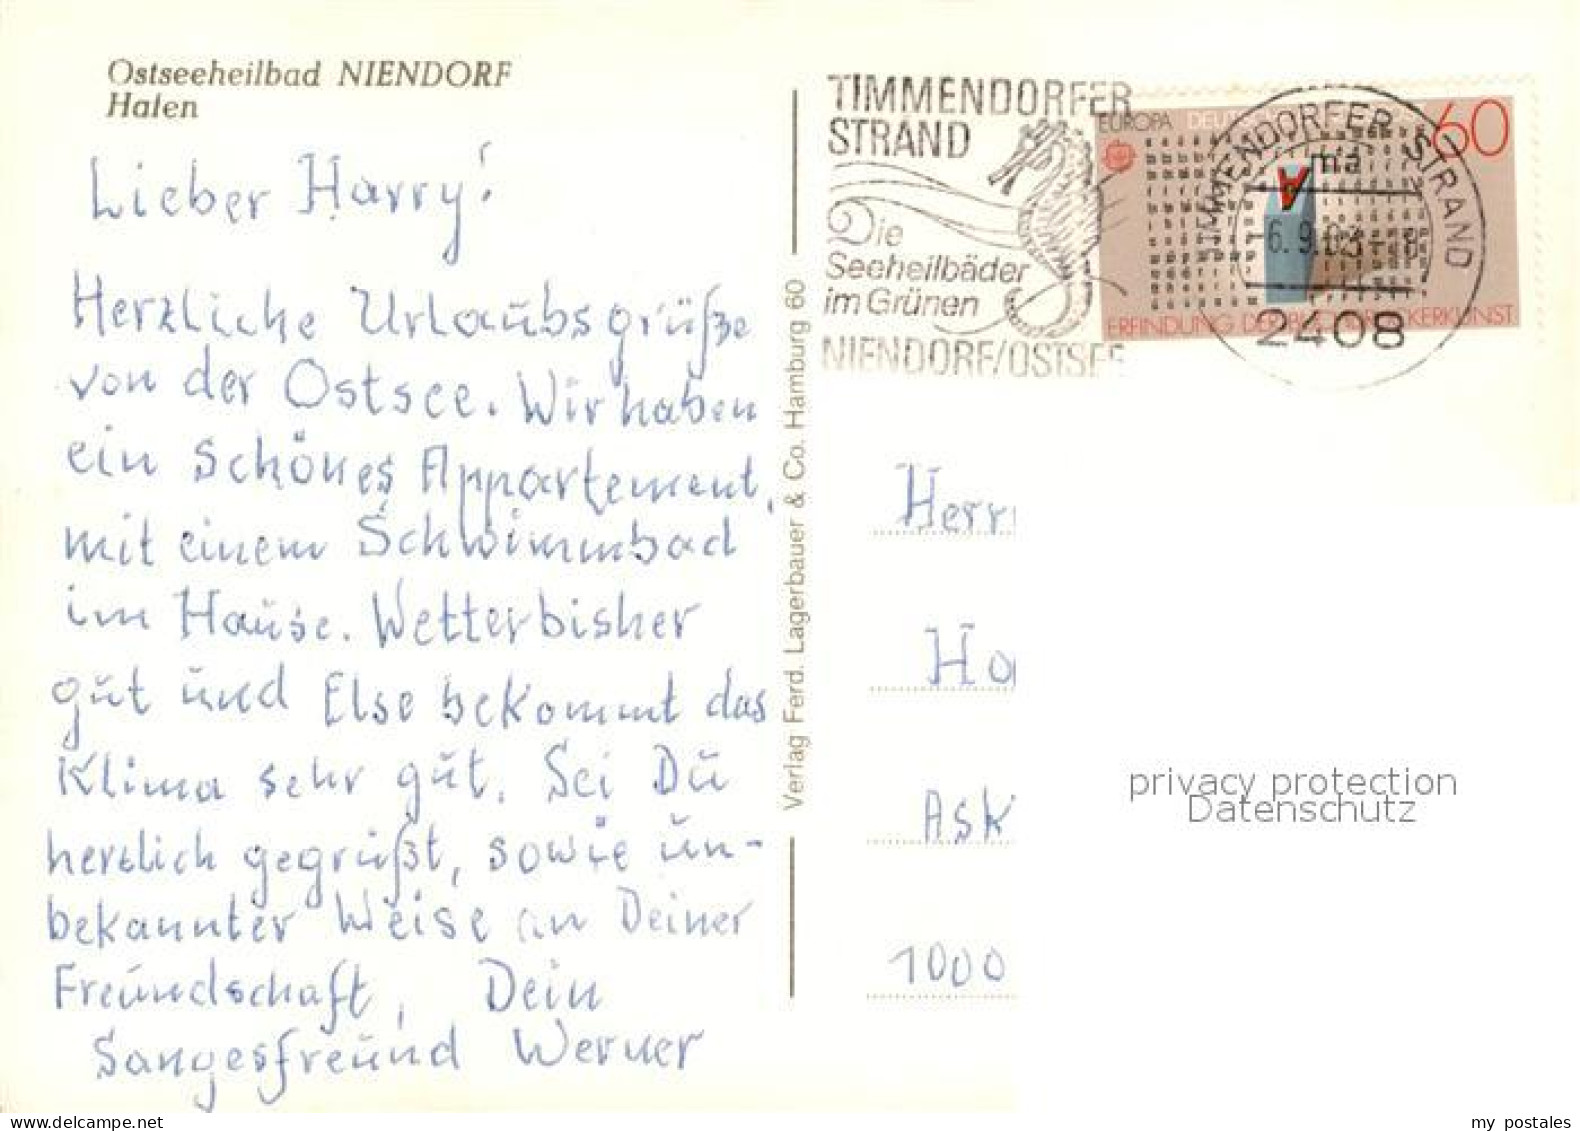 Ostseeheilbad NIENDORF
Hafen
Lieber Harry!
Herzliche Urlaubsgrüße
von der Ostsee. Wir haben
ein schönes Appartement,
mit einem Schwimmbad
im Hause. Wetter bisher
gut und Else bekommt das
Klima sehr gut. Sei Du
herzlich gegrüßt, sowie un-
bekannter Weise an Deiner
Freundschaft, Dein
Sangesfreund Werner
Verlag Ferd. Lagerbauer & Co. Hamburg 60
TIMMENDORFER
STRAND
Die
Seeheilbäder
im Grünen
NIENDORF/OSTSEE
EUROPA DEUTSCHE
60
ERFINDUNG DER BUCHDRUCKERKUNST
TIMMENDORFER STRAND
ma
6.9.83
2408
Herrn
Ha
Ask
1000
privacy protection
Datenschutz
www.delcampe.net
my postales